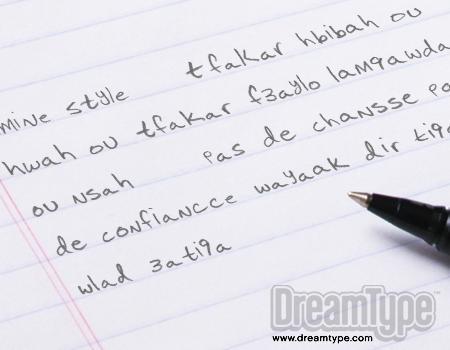 mine style tfakar hbibah ou
hwah ou tfakar f3aylo lam9awda
ou nsah pas de chansse pa
de confiancce wayaak dir ti9a
wlad 3ati9a
DreamType™
www.dreamtype.com